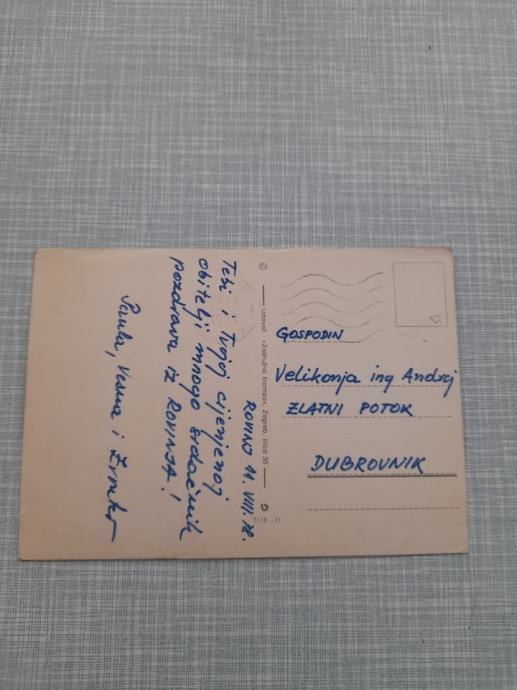 ROVINJ 11. VIII. 78.
Tebi i Tvojoj cijenjenoj
obitelji mnogo srdačnih
pozdrava iz ROVINJA!
Vesna i Zvonko
Izdavač „Zadružna štampa“, Zagreb, Ilica 35
GOSPODIN
Velikonja ing Andrej
ZLATNI POTOK
DUBROVNIK